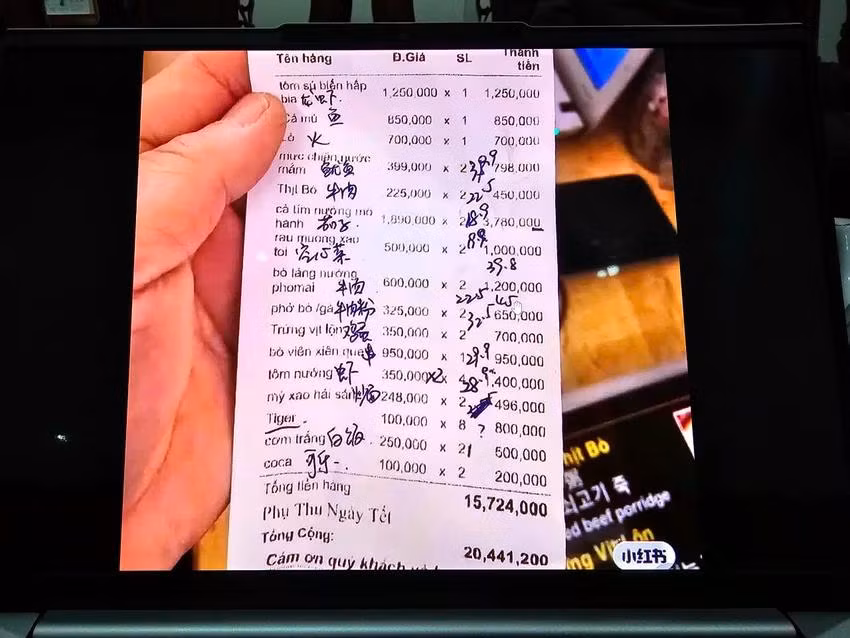 Tên hàng Đ.Giá SL Thành tiền
tôm sú biển hấp
bia 龙虾. 1,250,000 x 1 1,250,000
Cá mú 鱼 850,000 x 1 850,000
火 700,000 x 1 700,000
mực chiên nước
mắm 鱿鱼 399,000 x 2 39.9 798,000
Thịt Bò 牛肉 225,000 x 2 22.5 450,000
cà tím nướng mỡ
hành 茄子 1,890,000 x 2 18.9 3,780,000
rau muống xào
tỏi 空心菜 500,000 x 2 1,000,000
39.8
bò láng nướng
phomai 牛肉 600,000 x 2 1,200,000
22.5 45
phở bò /gà 牛肉粉 325,000 x 2 650,000
32.5
Trứng vịt lộn 鸡蛋 350,000 x 2 700,000
bò viên xiên que 串 950,000 x 1 29.9 950,000
tôm nướng 虾 350,000 x2 x 4 38.9 1,400,000
mỳ xào hải sản 248,000 x 2 496,000
Tiger 100,000 x 8 ? 800,000
cơm trắng 白饭 250,000 x 21 500,000
coca 可乐 100,000 x 2 200,000
Tổng tiền hàng 15,724,000
Phụ Thu Ngày Tết
Tổng Cộng: 20,441,200
Cám ơn quý khách
hịt Bò
쇠고기 죽
ed beef porridge
ng Vịt Lộn
小红书